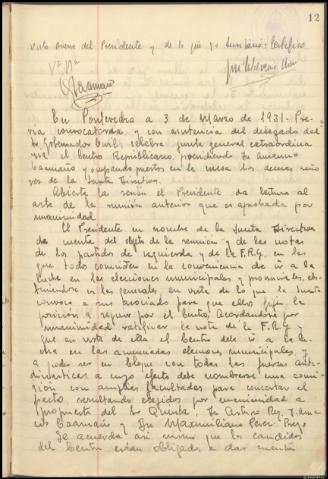 12
visto bueno del Presidente y de lo que yo Secretario Certifico
Vº Bº
En Pontevedra a 3 de Marzo de 1931 - Pre-
via convocatoria y con asistencia del delegado del
Sr Gobernador Civil, celebra junta general extraordina
ria el Centro Republicano, presidiendo Sr Amancio
Caamaño y ocupando puestos en la mesa los demas seño
res de la Junta Directiva
Abierta la sesión el Presidente da lectura al
acta de la reunión anterior que es aprobada por
unanimidad
El Presidente en nombre de la Junta Directiva
da cuenta del objeto de la reunion y de las notas
de los partidos de izquierda y de la F.R.G. en las
que todo coinciden en la conveniencia de ir a la
lucha en las elecciones municipales y provinciales, abs-
teniendose a las generales en vista de lo que la Junta
convoca a sus asociados para que ellos fijen la
posición a seguir por el Centro, Acordandose por
unanimidad ratificar la nota de la F.R.G. y
que en vista de ella el Centro debe ir a la lu-
cha en las anunciadas elecciones municipales, y
a poder ser en bloque con todas las fuerzas anti-
dinasticas a cuyo efecto debe nombrarse una comi-
sión con amplias facultades para concertar el
pacto, resultando elegidos por unanimidad a
propuesta del Sr Quinta, Sr Arturo Rey, Sr Aman
cio Caamaño y Sr Maximiliano Perez Prego
Se acuerda asi mismo que los candidatos
del Centro están obligados a dar cuenta